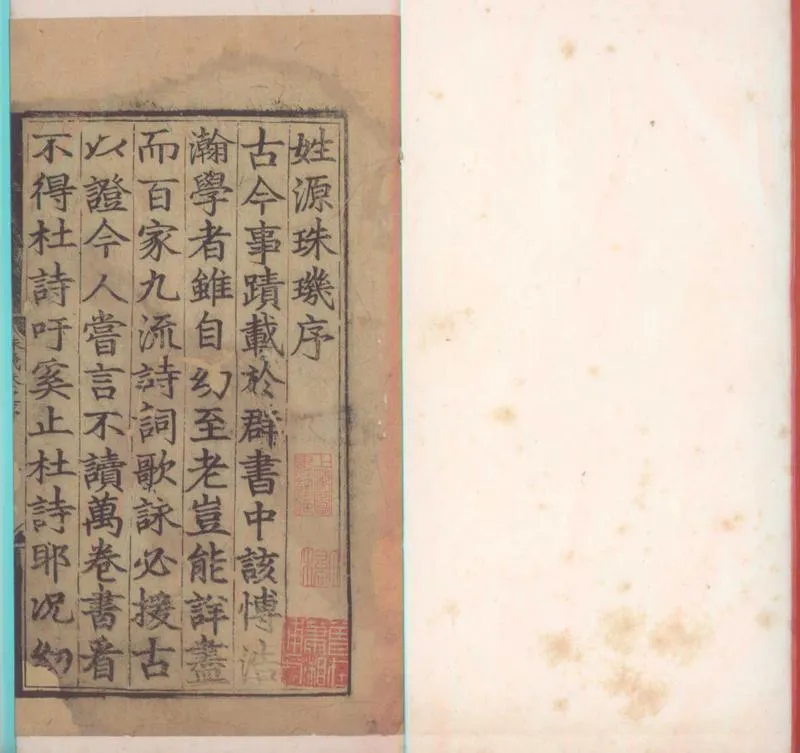 姓源珠璣序
古今事蹟載於群書中該愽浩
瀚學者雖自幼至老豈能詳盡
而百家九流詩詞歌詠必援古
以證今人嘗言不讀萬卷書看
不得杜詩吁奚止杜詩耶况幼